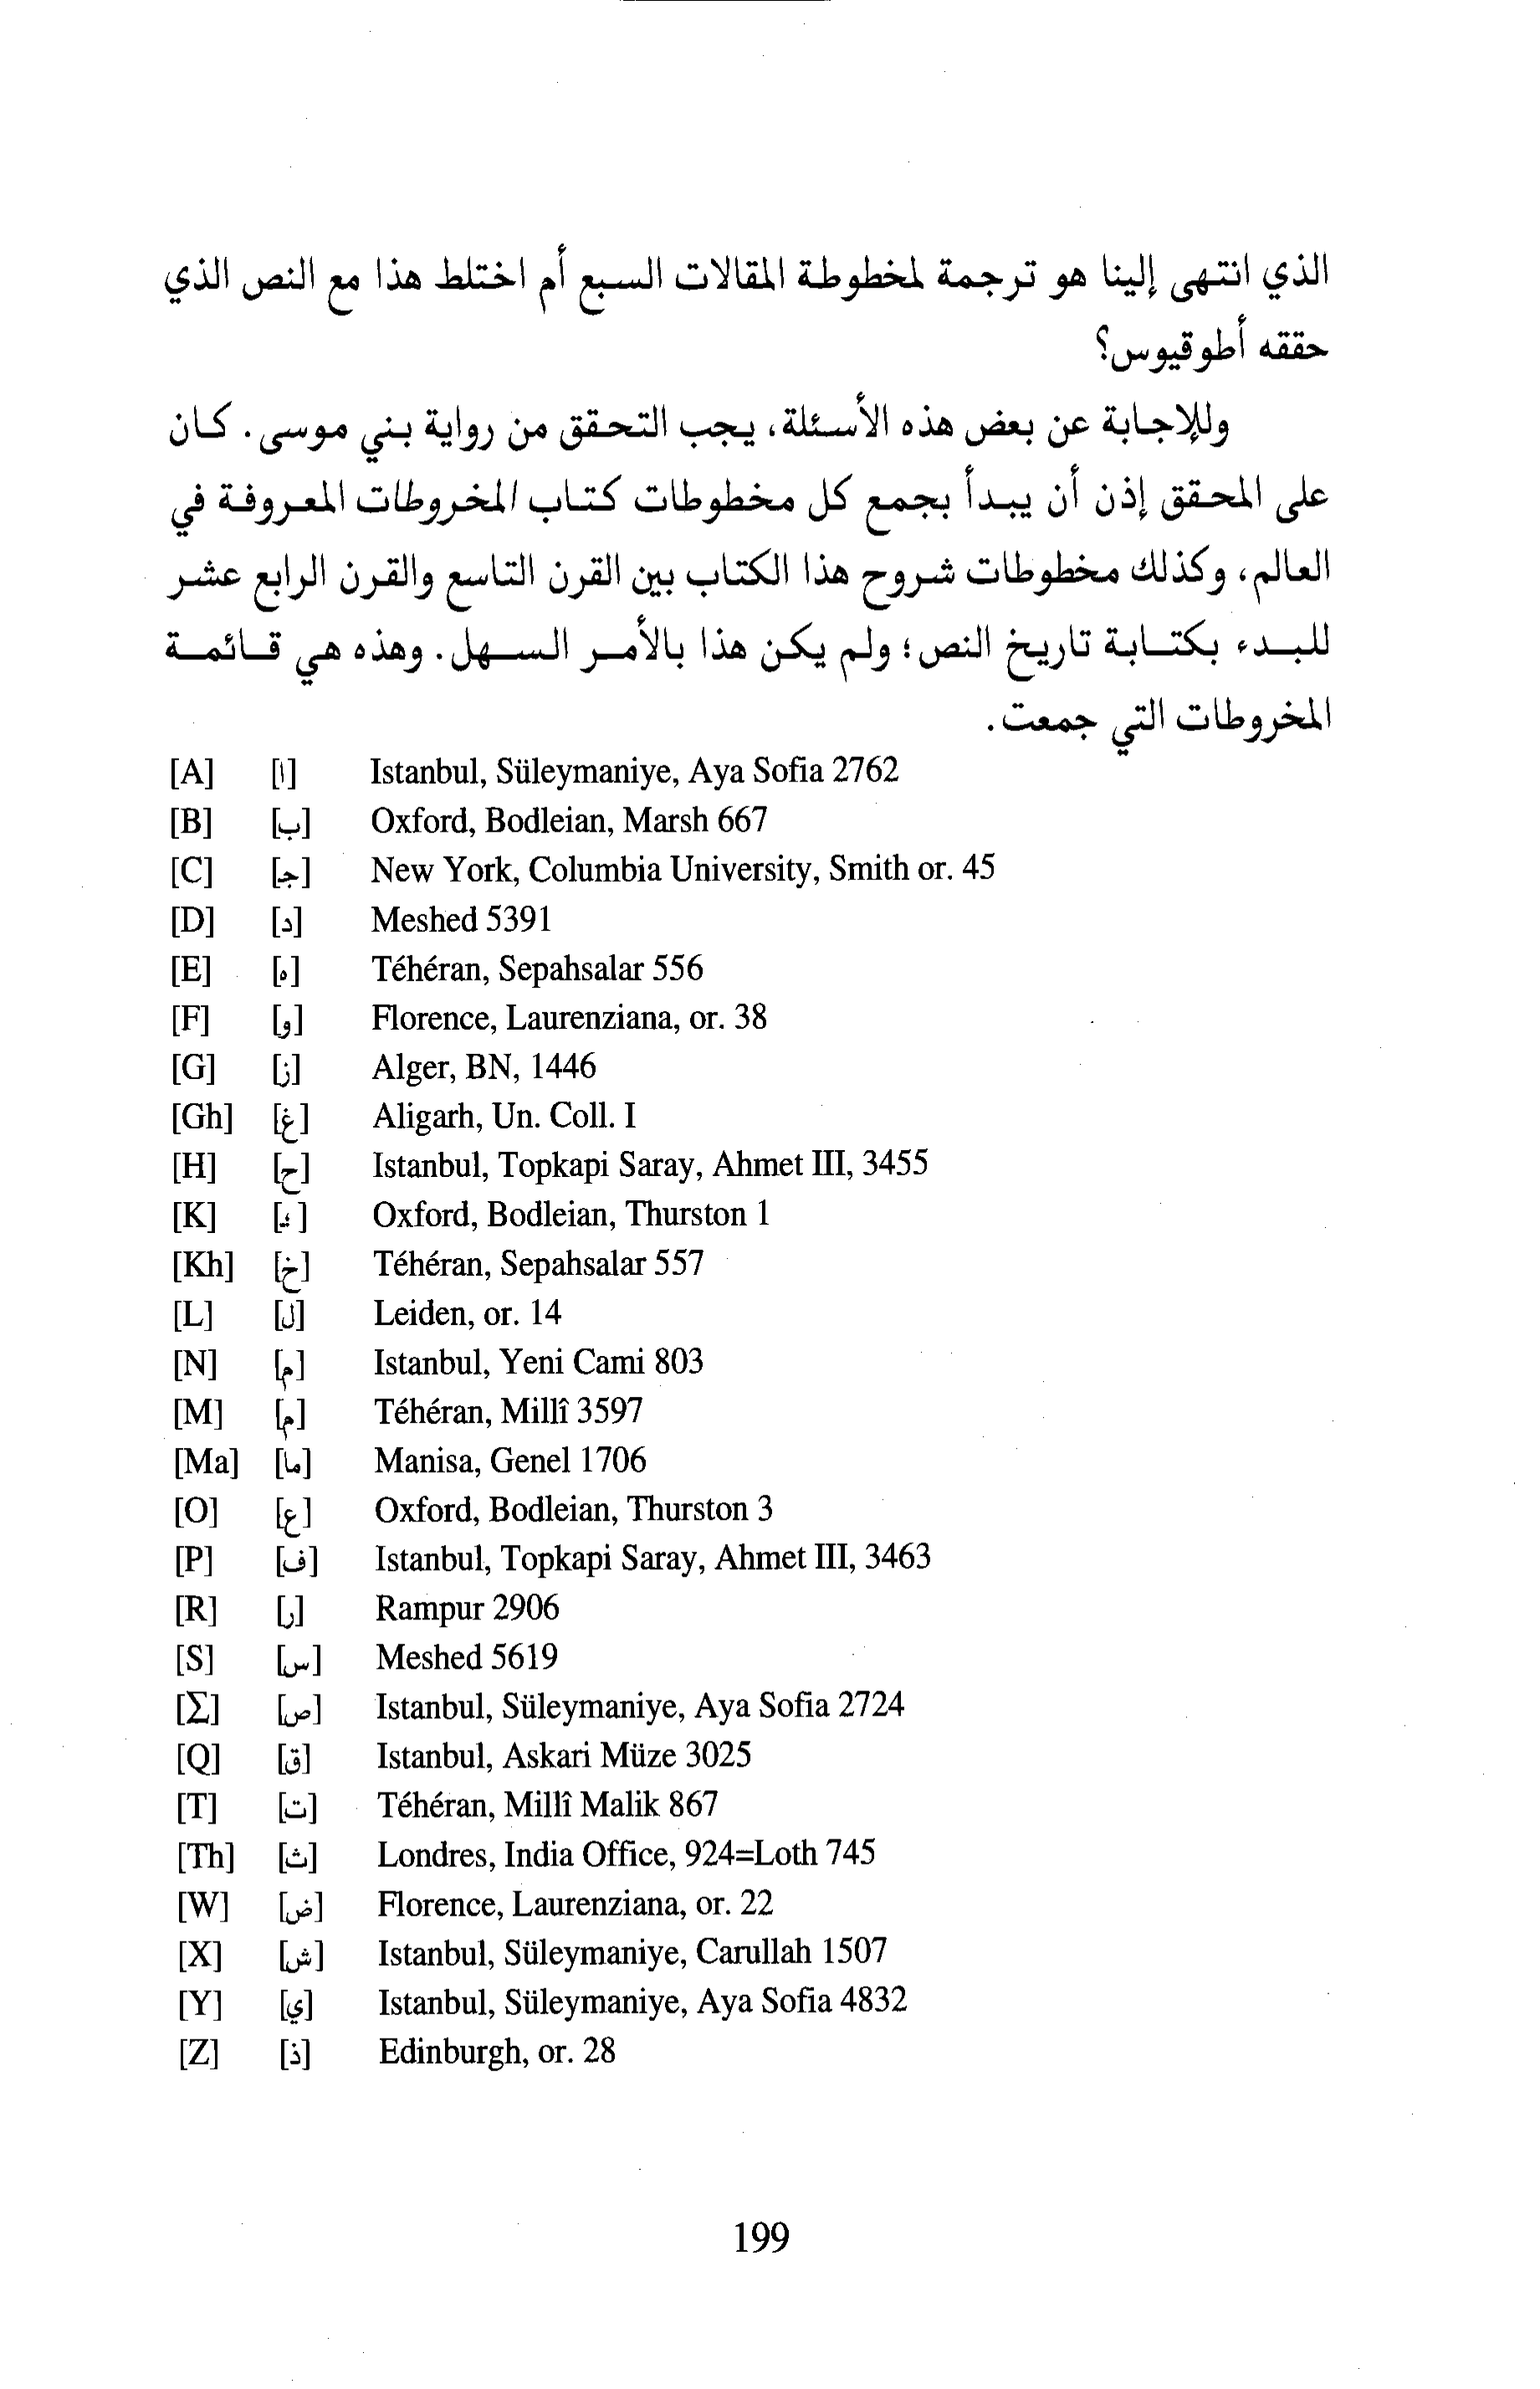 الذي انتهى إلينا هو ترجمة لمخطوطة المقالات السبع أم اختلط هذا مع النص الذي
حققه أطوقيوس؟
وللإجابة عن بعض هذه الأسئلة، يجب التحقق من رواية بني موسى. كان
على المحقق إذن أن يبدأ بجمع كل مخطوطات كتاب المخروطات المعروفة في
العالم، وكذلك مخطوطات شروح هذا الكتاب بين القرن التاسع والقرن الرابع عشر
للبدء بكتابة تاريخ النص؛ ولم يكن هذا بالأمر السهل. وهذه هي قائمة
المخروطات التي جمعت.
[A] [ا] Istanbul, Süleymaniye, Aya Sofia 2762
[B] [ب] Oxford, Bodleian, Marsh 667
[C] [جـ] New York, Columbia University, Smith or. 45
[D] [د] Meshed 5391
[E] [ه] Téhéran, Sepahsalar 556
[F] [و] Florence, Laurenziana, or. 38
[G] [ز] Alger, BN, 1446
[Gh] [غ] Aligarh, Un. Coll. I
[H] [ح] Istanbul, Topkapi Saray, Ahmet III, 3455
[K] [ك] Oxford, Bodleian, Thurston 1
[Kh] [خ] Téhéran, Sepahsalar 557
[L] [ل] Leiden, or. 14
[N] [م] Istanbul, Yeni Cami 803
[M] [م] Téhéran, Millî 3597
[Ma] [ما] Manisa, Genel 1706
[O] [ع] Oxford, Bodleian, Thurston 3
[P] [ف] Istanbul, Topkapi Saray, Ahmet III, 3463
[R] [ر] Rampur 2906
[S] [س] Meshed 5619
[Σ] [ص] Istanbul, Süleymaniye, Aya Sofia 2724
[Q] [ق] Istanbul, Askari Müze 3025
[T] [ت] Téhéran, Millî Malik 867
[Th] [ث] Londres, India Office, 924=Loth 745
[W] [ض] Florence, Laurenziana, or. 22
[X] [ش] Istanbul, Süleymaniye, Carullah 1507
[Y] [ي] Istanbul, Süleymaniye, Aya Sofia 4832
[Z] [ذ] Edinburgh, or. 28
199